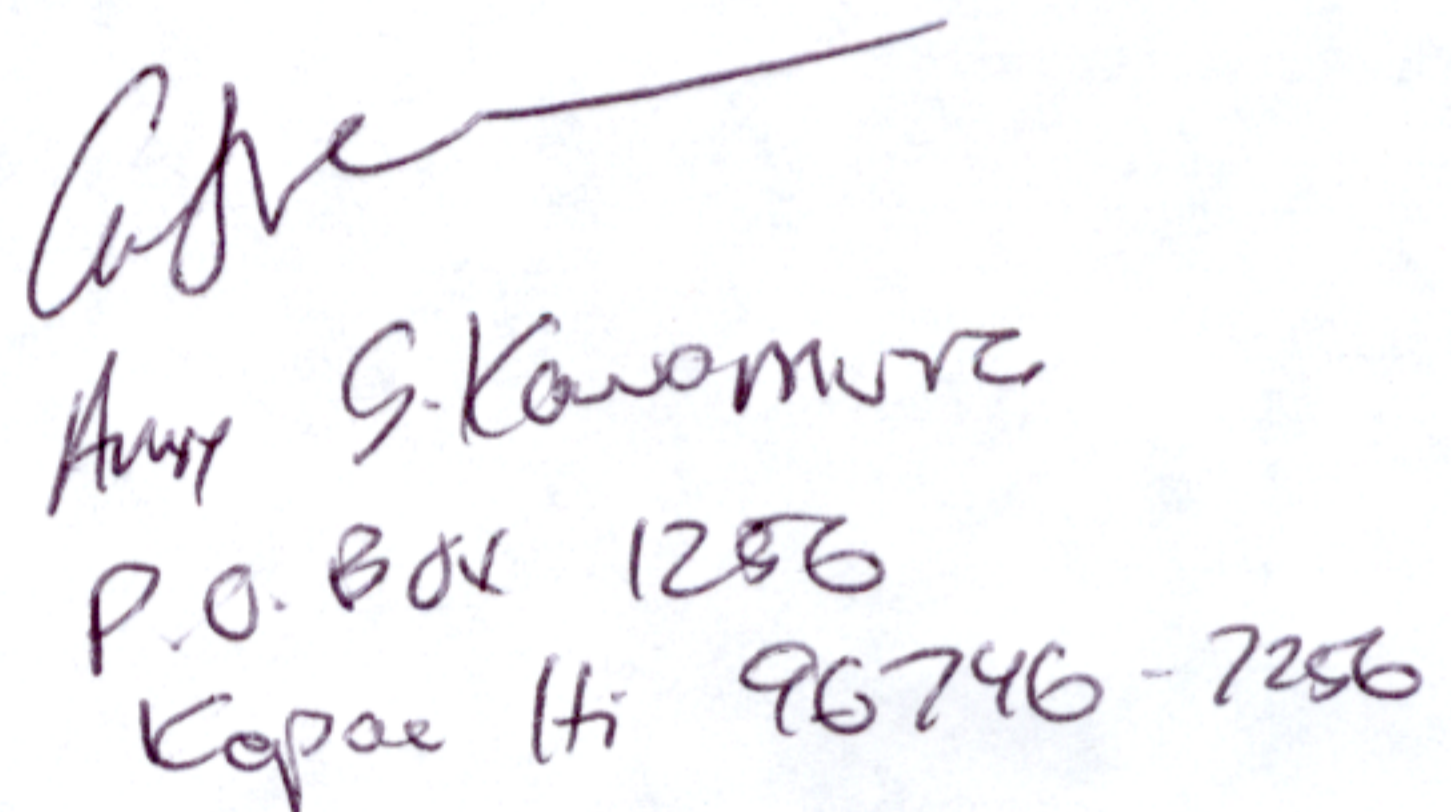 S. Kawamura
P.O. Box 1256
Kapaa Hi 96746-7256